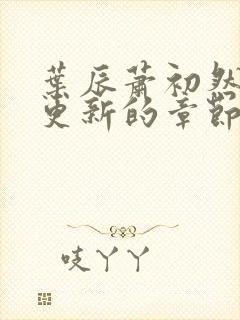 葉辰蕭初然
更新的章節
吱丫丫